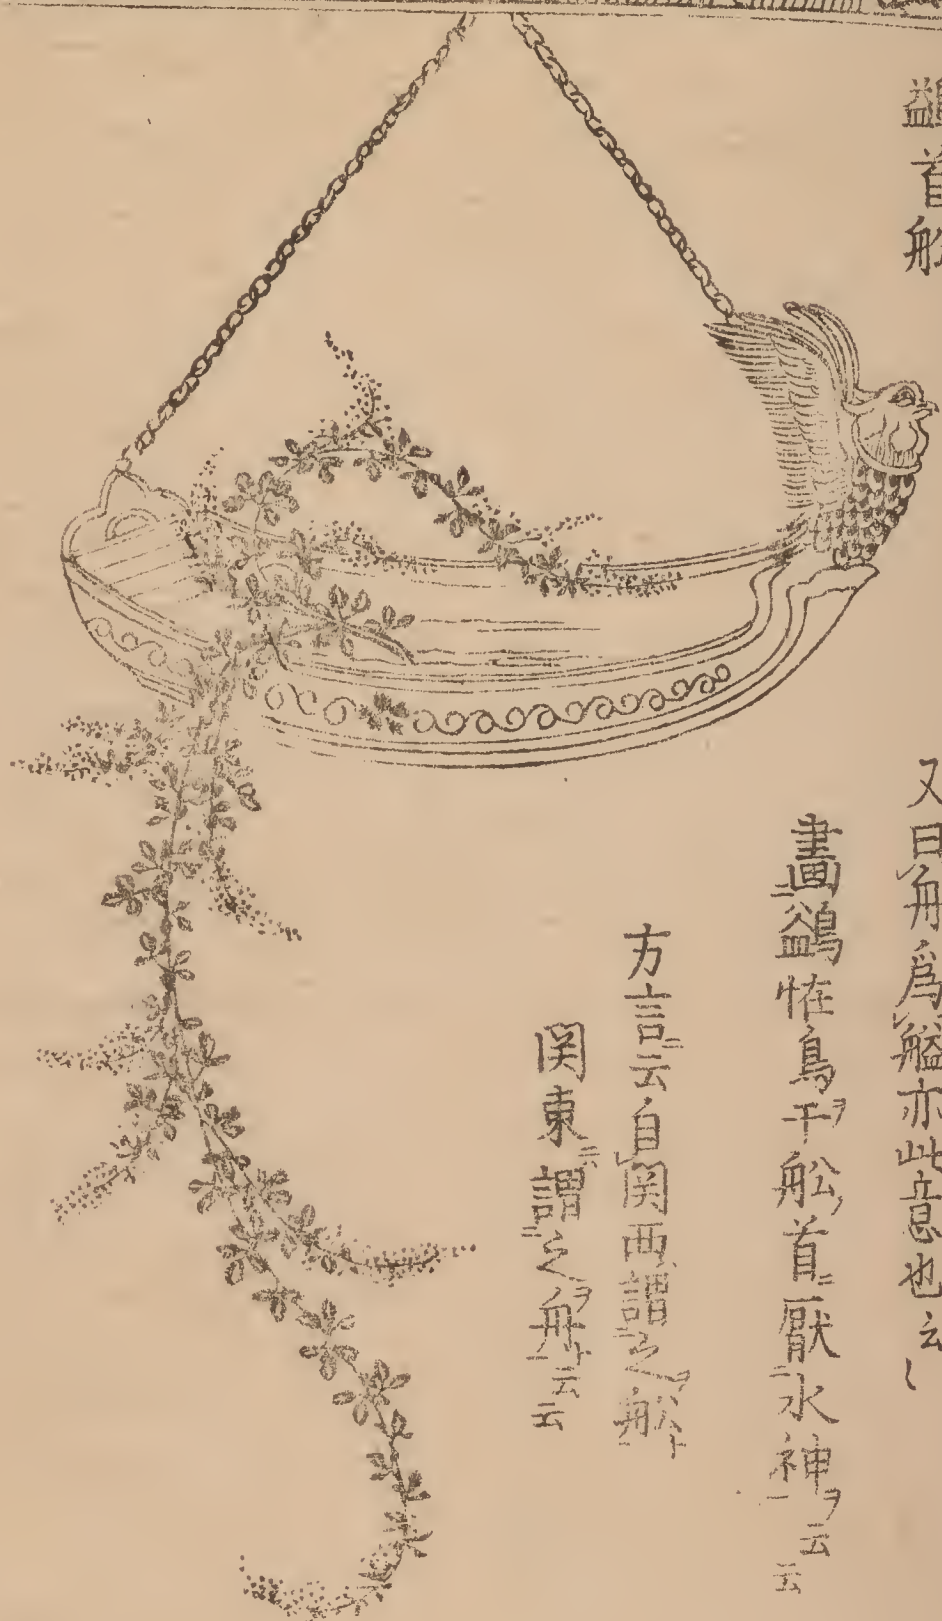 鷁首舩
又曰舟爲艗亦此意也云〻
畫鷁恠鳥于舩首厭水神云云
方言云自関西謂之舩
関東謂之舟云云